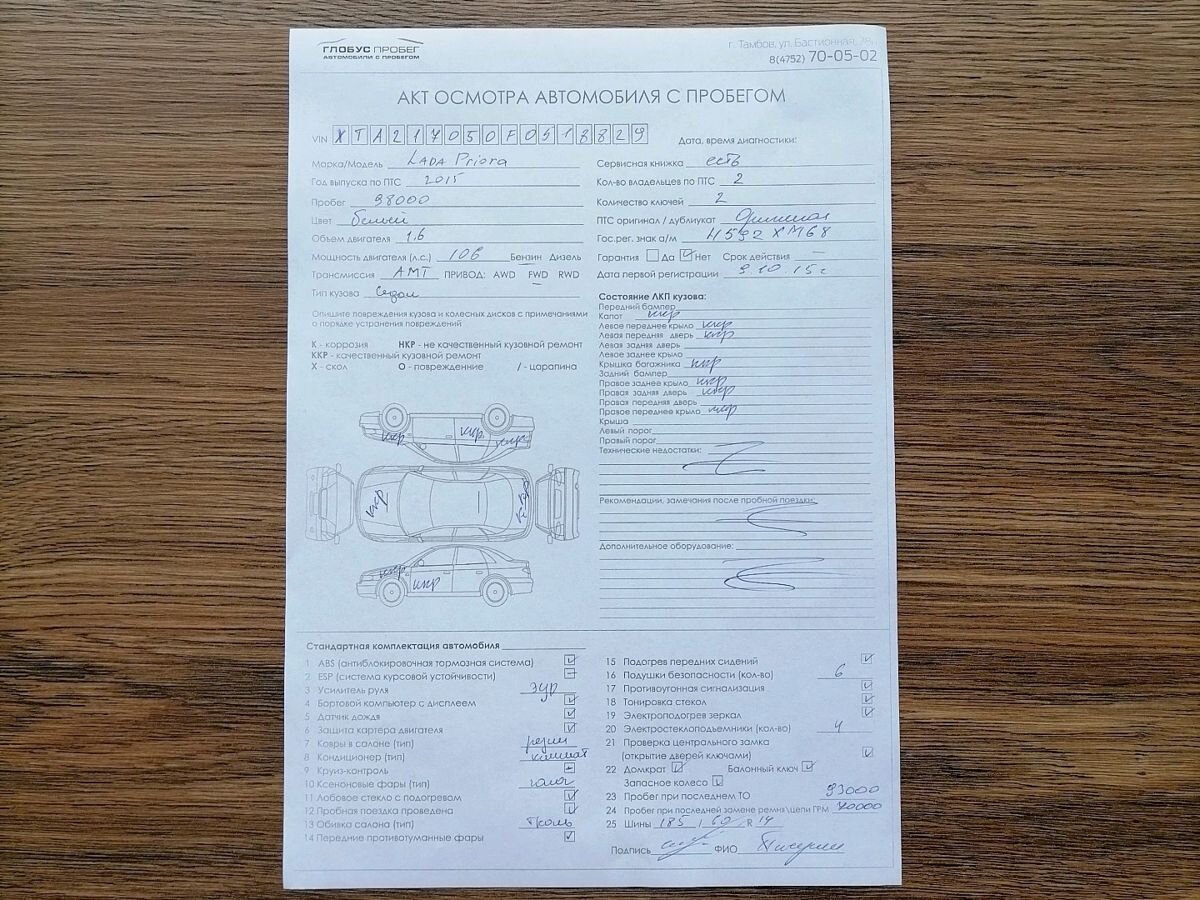 ГЛОБУС ПРОБЕГ
АВТОМОБИЛИ С ПРОБЕГОМ
г. Тамбов, ул. Бастионная,
8(4752) 70-05-02
АКТ ОСМОТРА АВТОМОБИЛЯ С ПРОБЕГОМ
VIN XTA217050F0518829
Дата, время диагностики:
Марка/Модель LADA Priora
Год выпуска по ПТС 2015
Пробег 98000
Цвет белый
Объем двигателя 1.6
Мощность двигателя (л.с.) 106 Бензин Дизель
Трансмиссия АМТ ПРИВОД: AWD FWD RWD
Тип кузова Седан
Опишите повреждения кузова и колесных дисков с примечаниями
о порядке устранения повреждений
К - коррозия НКР - не качественный кузовной ремонт
ККР - качественный кузовной ремонт
Х - скол О - поврежденние / - царапина
ккр ккр ккр
ккр ккр
ккр
ккр
Сервисная книжка есть
Кол-во владельцев по ПТС 2
Количество ключей 2
ПТС оригинал / дубликат Оригинал
Гос.рег. знак а/м Н592ХМ68
Гарантия Да Нет Срок действия —
Дата первой регистрации 9.10.15г
Состояние ЛКП кузова:
Передний бампер
Капот ккр
Левое переднее крыло ккр
Левая передняя дверь ккр
Левая задняя дверь
Левое заднее крыло
Крышка багажника ккр
Задний бампер
Правое заднее крыло ккр
Правая задняя дверь ккр
Правая передняя дверь
Правое переднее крыло ккр
Крыша
Левый порог
Правый порог
Технические недостатки:
Рекомендации, замечания после пробной поездки:
Дополнительное оборудование:
Стандартная комплектация автомобиля
1 ABS (антиблокировочная тормозная система)
2 ESP (система курсовой устойчивости)
3 Усилитель руля ЭУР
4 Бортовой компьютер с дисплеем
5 Датчик дождя
6 Защита картера двигателя
7 Ковры в салоне (тип) резин
8 Кондиционер (тип) климат
9 Круиз-контроль
10 Ксеноновые фары (тип)
11 Лобовое стекло с подогревом
12 Пробная поездка проведена
13 Обивка салона (тип) Ткань
14 Передние противотуманные фары
15 Подогрев передних сидений
16 Подушки безопасности (кол-во) 6
17 Противоугонная сигнализация
18 Тонировка стекол
19 Электроподогрев зеркал
20 Электростеклоподъемники (кол-во) 4
21 Проверка центрального замка
(открытие дверей ключами)
22 Домкрат Балонный ключ
Запасное колесо
23 Пробег при последнем ТО 93000
24 Пробег при последней замене ремня\цепи ГРМ 70000
25 Шины 185 / 60 R 14
Подпись ФИО